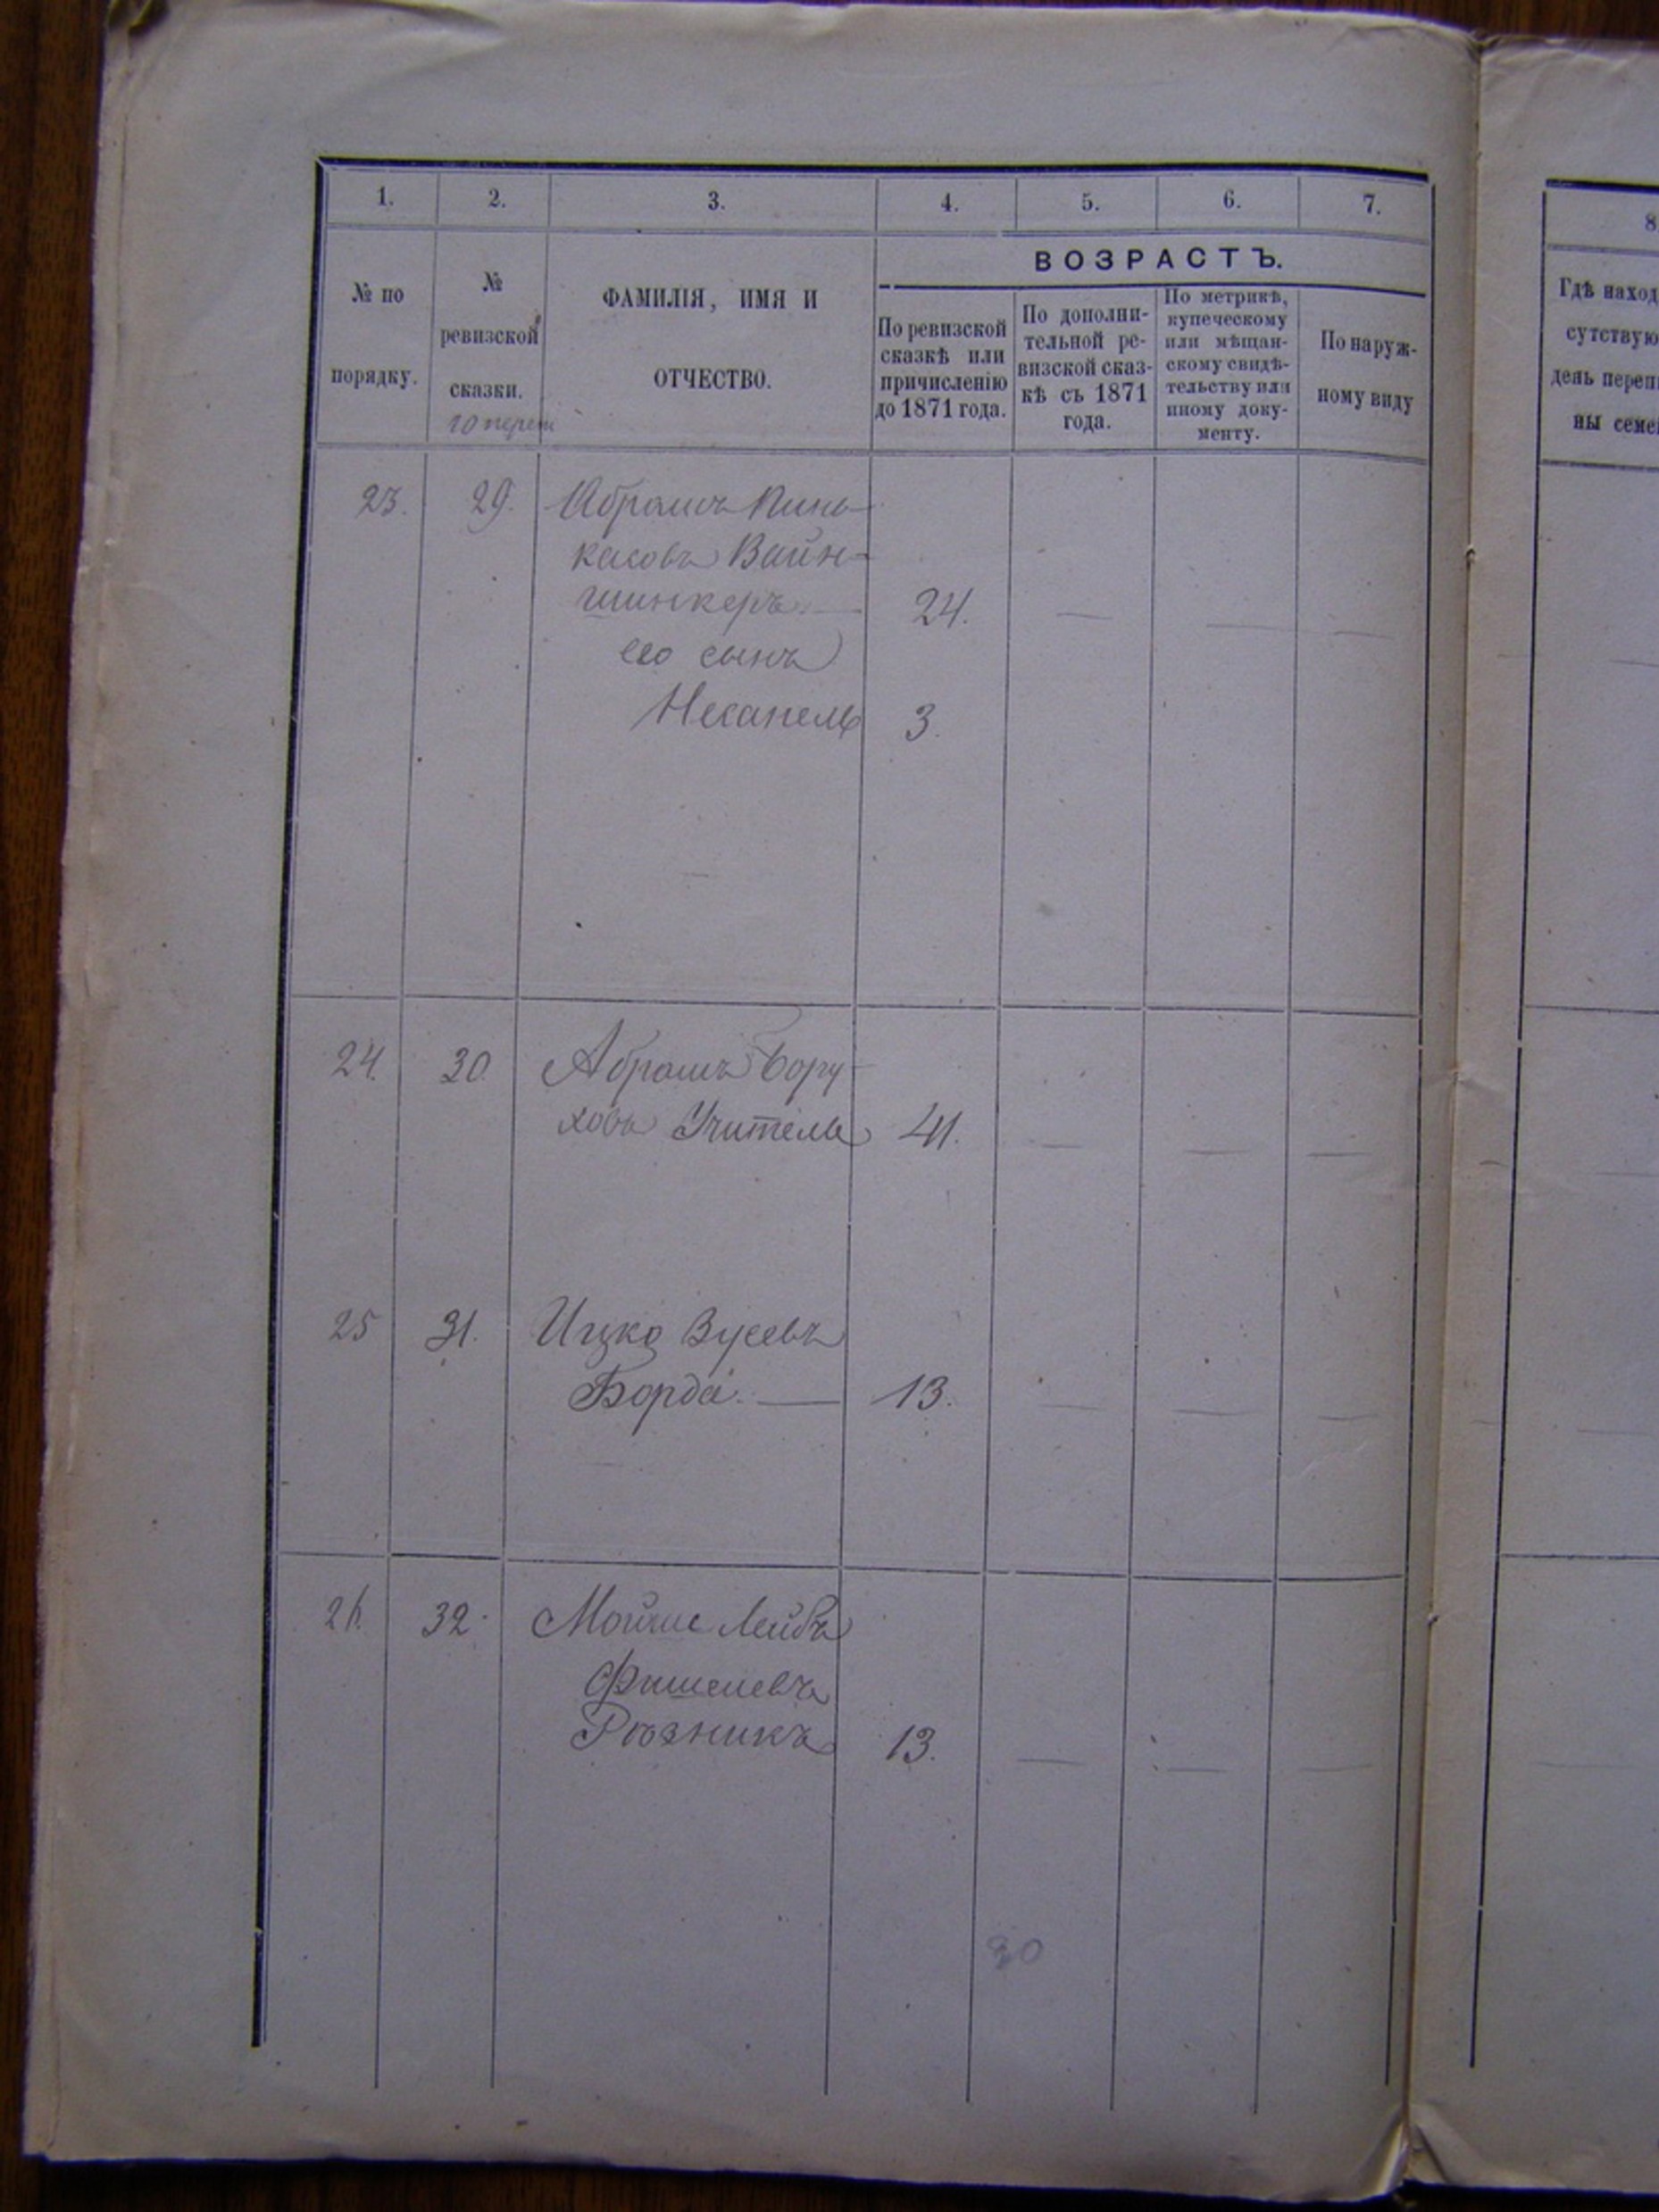 1. 2. 3. 4. 5. 6. 7.
№ по
порядку.
№
ревизской
сказки.
10 переп
ФАМИЛІЯ, ИМЯ И
ОТЧЕСТВО.
ВОЗРАСТЪ.
По ревизской
сказкѣ или
причисленію
до 1871 года.
По дополни-
тельной ре-
визской сказ-
кѣ съ 1871
года.
По метрикѣ,
купеческому
или мѣщан-
скому свидѣ-
тельству или
иному доку-
менту.
По наруж-
ному виду
23. 29. Абрамъ Пинь-
касовъ Вайн-
шинкеръ — 24. — — —
его сынъ
Несанель 3.
24. 30. Абрамъ Бору-
ховъ Учитель 41. — — —
25 31. Ицко Зусевъ
Борда. — 13. — — —
26. 32. Мойше Лейбъ
Фишелевъ
Рѣзникъ 13. — — —
30
8
Гдѣ наход
сутствую
день переп
ны семе